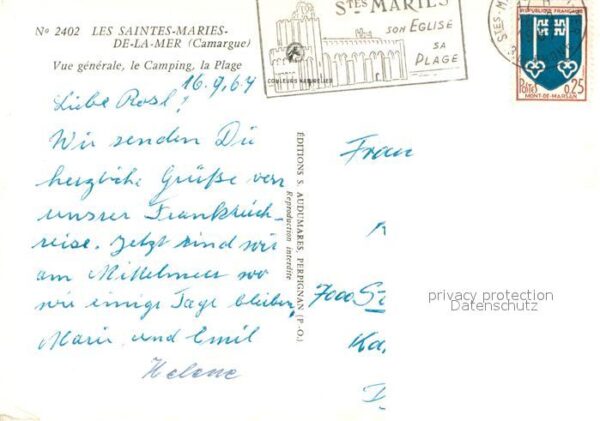 Nº 2402 LES SAINTES-MARIES-
DE-LA-MER (Camargue)
Vue générale, le Camping, la Plage
STES MARIES
SON EGLISE
SA
PLAGE
COULEURS NATURELLES
RÉPUBLIQUE FRANÇAISE
POSTES 0,25
MONT-DE-MARSAN
16.9.67
Liebe Rosl!
Wir senden Dir
herzliche Grüße von
unsrer Frankreich-
reise. Jetzt sind wir
am Mittelmeer wo
wir einige Tage bleiben.
Marie und Emil
Helene
ÉDITIONS S. AUDUMARES, PERPIGNAN (P.-O.)
Reproduction interdite
Frau
7000 St
Ka
privacy protection
Datenschutz